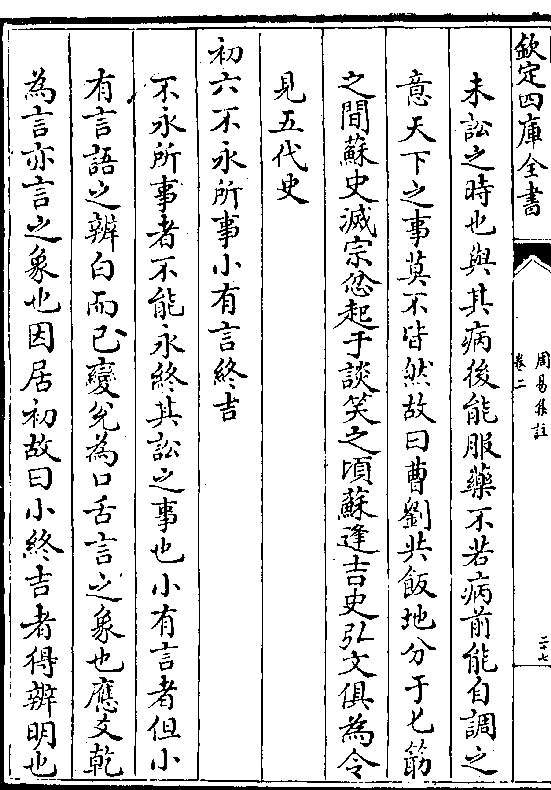 欽定四庫全書
周易集註
卷二
二十七
未訟之時也與其病後能服藥不若病前能自調之
意天下之事莫不皆然故曰曹劉共飯地分于匕筯
之間蘇史滅宗忿起于談笑之頃蘇逢吉史弘文俱為令
見五代史
初六不永所事小有言終吉
不永所事者不能永終其訟之事也小有言者但小
有言語之辨白而已變兌為口舌言之象也應爻乾
為言亦言之象也因居初故曰小終吉者得辨明也